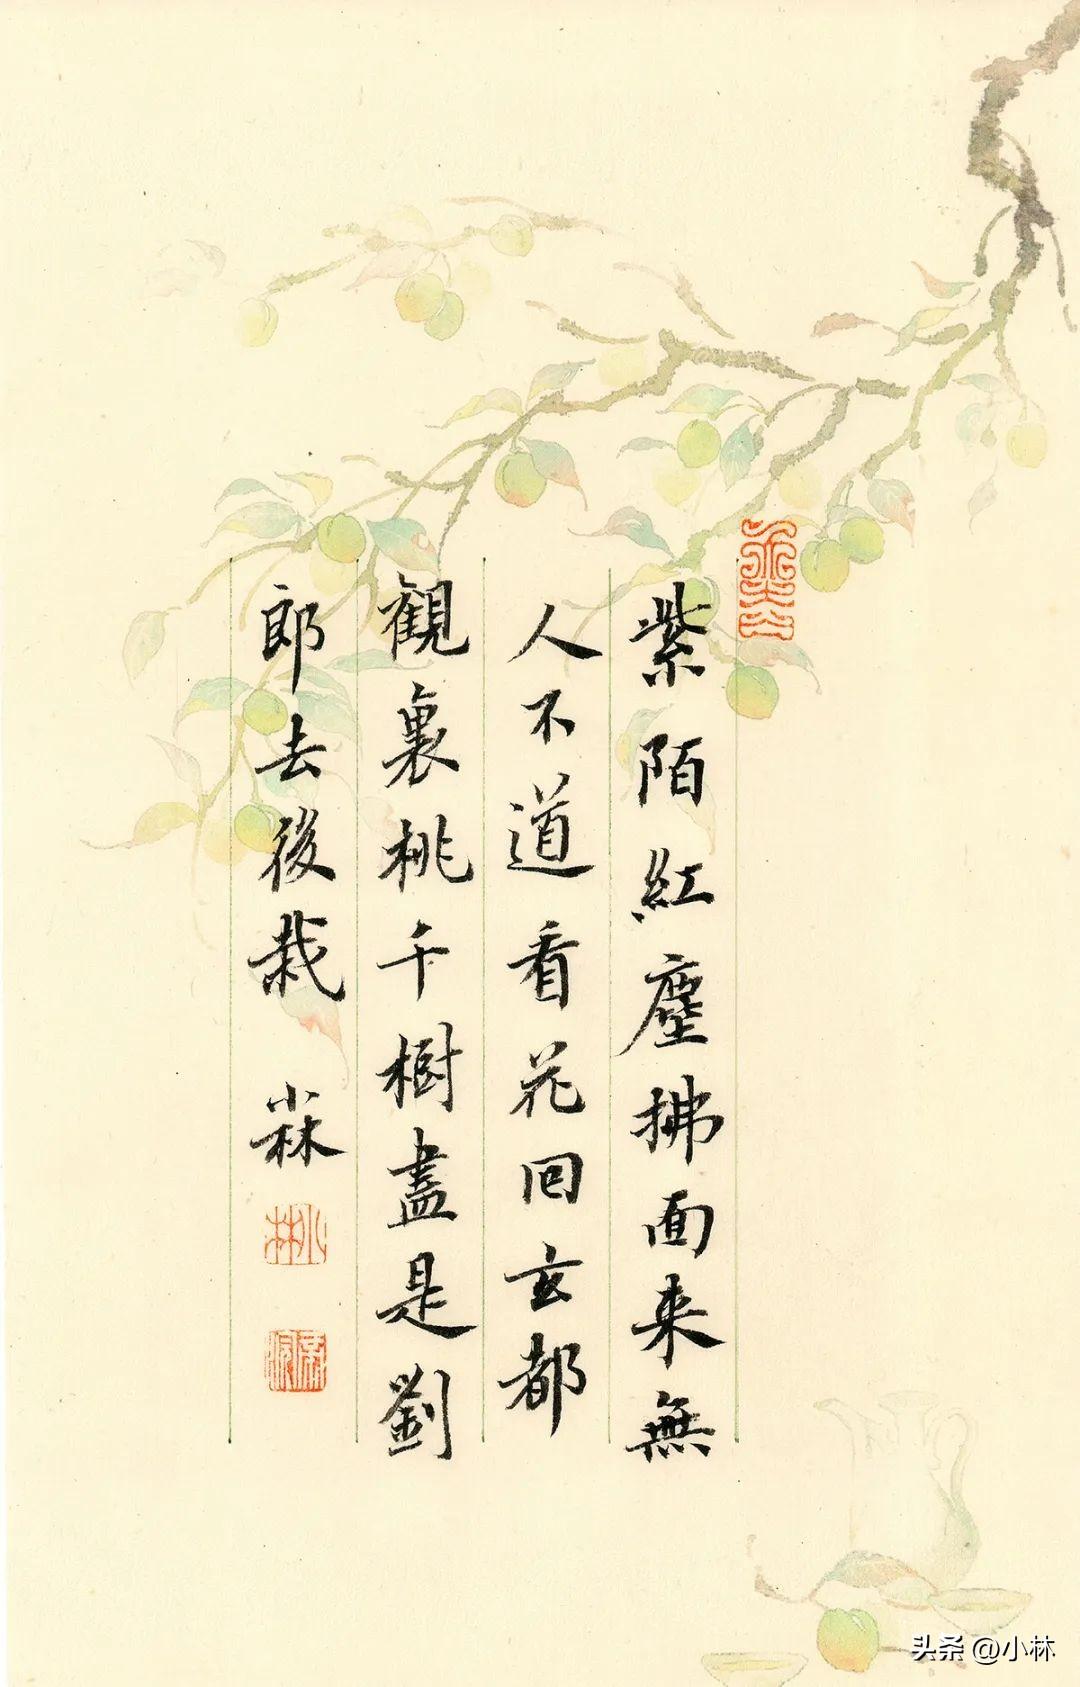 紫陌紅塵拂面来無
人不道看花回玄都
觀裏桃千樹盡是劉
郎去後栽 小林
小林
头条 @小林